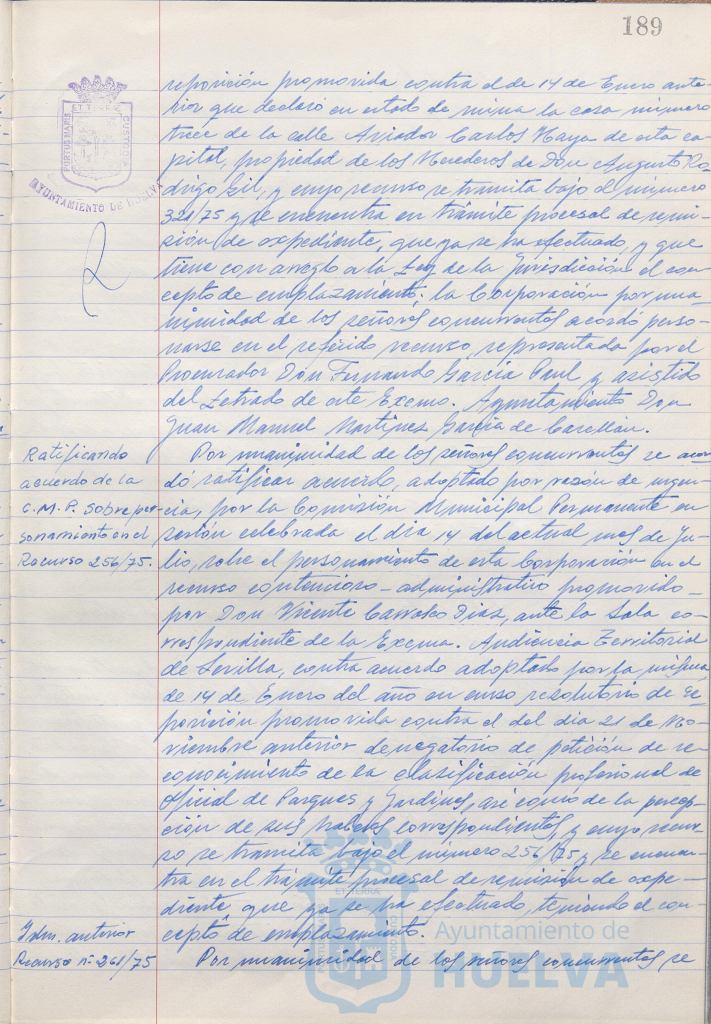 189
PORTUS MARIS
ET TERRAE
CUSTODIA
AYUNTAMIENTO DE HUELVA
reposición promovida contra el de 14 de Enero ante-
rior que declaró en estado de ruina la casa número
trece de la calle Aviador Carlos Haya de esta ca-
pital, propiedad de los Herederos de Don Augusto Ro-
drigo Gil, y cuyo recurso se tramita bajo el número
321/75 y se encuentra en trámite procesal de remi-
sión de expediente, que ya se ha efectuado, y que
tiene con arreglo a la Ley de la Jurisdicción el con-
cepto de emplazamiento; la Corporación por una-
nimidad de los señores concurrentes acordó perso-
narse en el referido recurso, representada por el
Procurador Don Fernando García Paul y asistido
del Letrado de este Excmo. Ayuntamiento Don
Juan Manuel Martínez García de
Ratificando
acuerdo de la
C.M.P. sobre per-
sonamiento en el
Recurso 256/75.
Por unanimidad de los señores concurrentes se acor-
dó ratificar acuerdo, adoptado por razón de urgen-
cia, por la Comisión Municipal Permanente en
sesión celebrada el día 14 del actual mes de Ju-
lio, sobre el personamiento de esta Corporación en el
recurso contencioso-administrativo promovido-
por Don Vicente Carrasco Díaz, ante la Sala co-
rrespondiente de la Excma. Audiencia Territorial
de Sevilla, contra acuerdo adoptado por la misma
de 14 de Enero del año en curso resolutorio de re-
posición promovida contra el del día 21 de No-
viembre anterior denegatorio de petición de re-
conocimiento de la clasificación profesional de
Oficial de Parques y Jardines, así como de la percep-
ción de sus haberes correspondientes, y cuyo recur-
so se tramita bajo el número 256/75 y se encuen-
tra en el trámite procesal de remisión de expe-
diente que ya se ha efectuado, teniendo el con-
cepto de emplazamiento.
Idm. anterior
Recurso nº 261/75
Por unanimidad de los señores concurrentes se
Ayuntamiento de
HUELVA